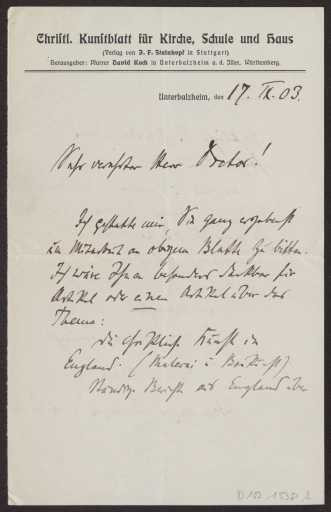 Christl. Kunstblatt für Kirche, Schule und Haus
(Verlag von J. F. Steinkopf in Stuttgart)
Herausgeber: Pfarrer David Koch in Unterbalzheim a. d. Iller, Württemberg.
Unterbalzheim, den 17. IX. 03.
Sehr verehrter Herr Doctor!
Ich gestatte mir, Sie ganz ergebenst
um Mitarbeit an obigem Blatte zu bitten.
Ich wäre Ihnen besonders dankbar für
Artikel oder einen Artikel über das
Thema:
die christliche Kunst in
England. (Malerei u Baukunst)
Ständige Berichte aus England über